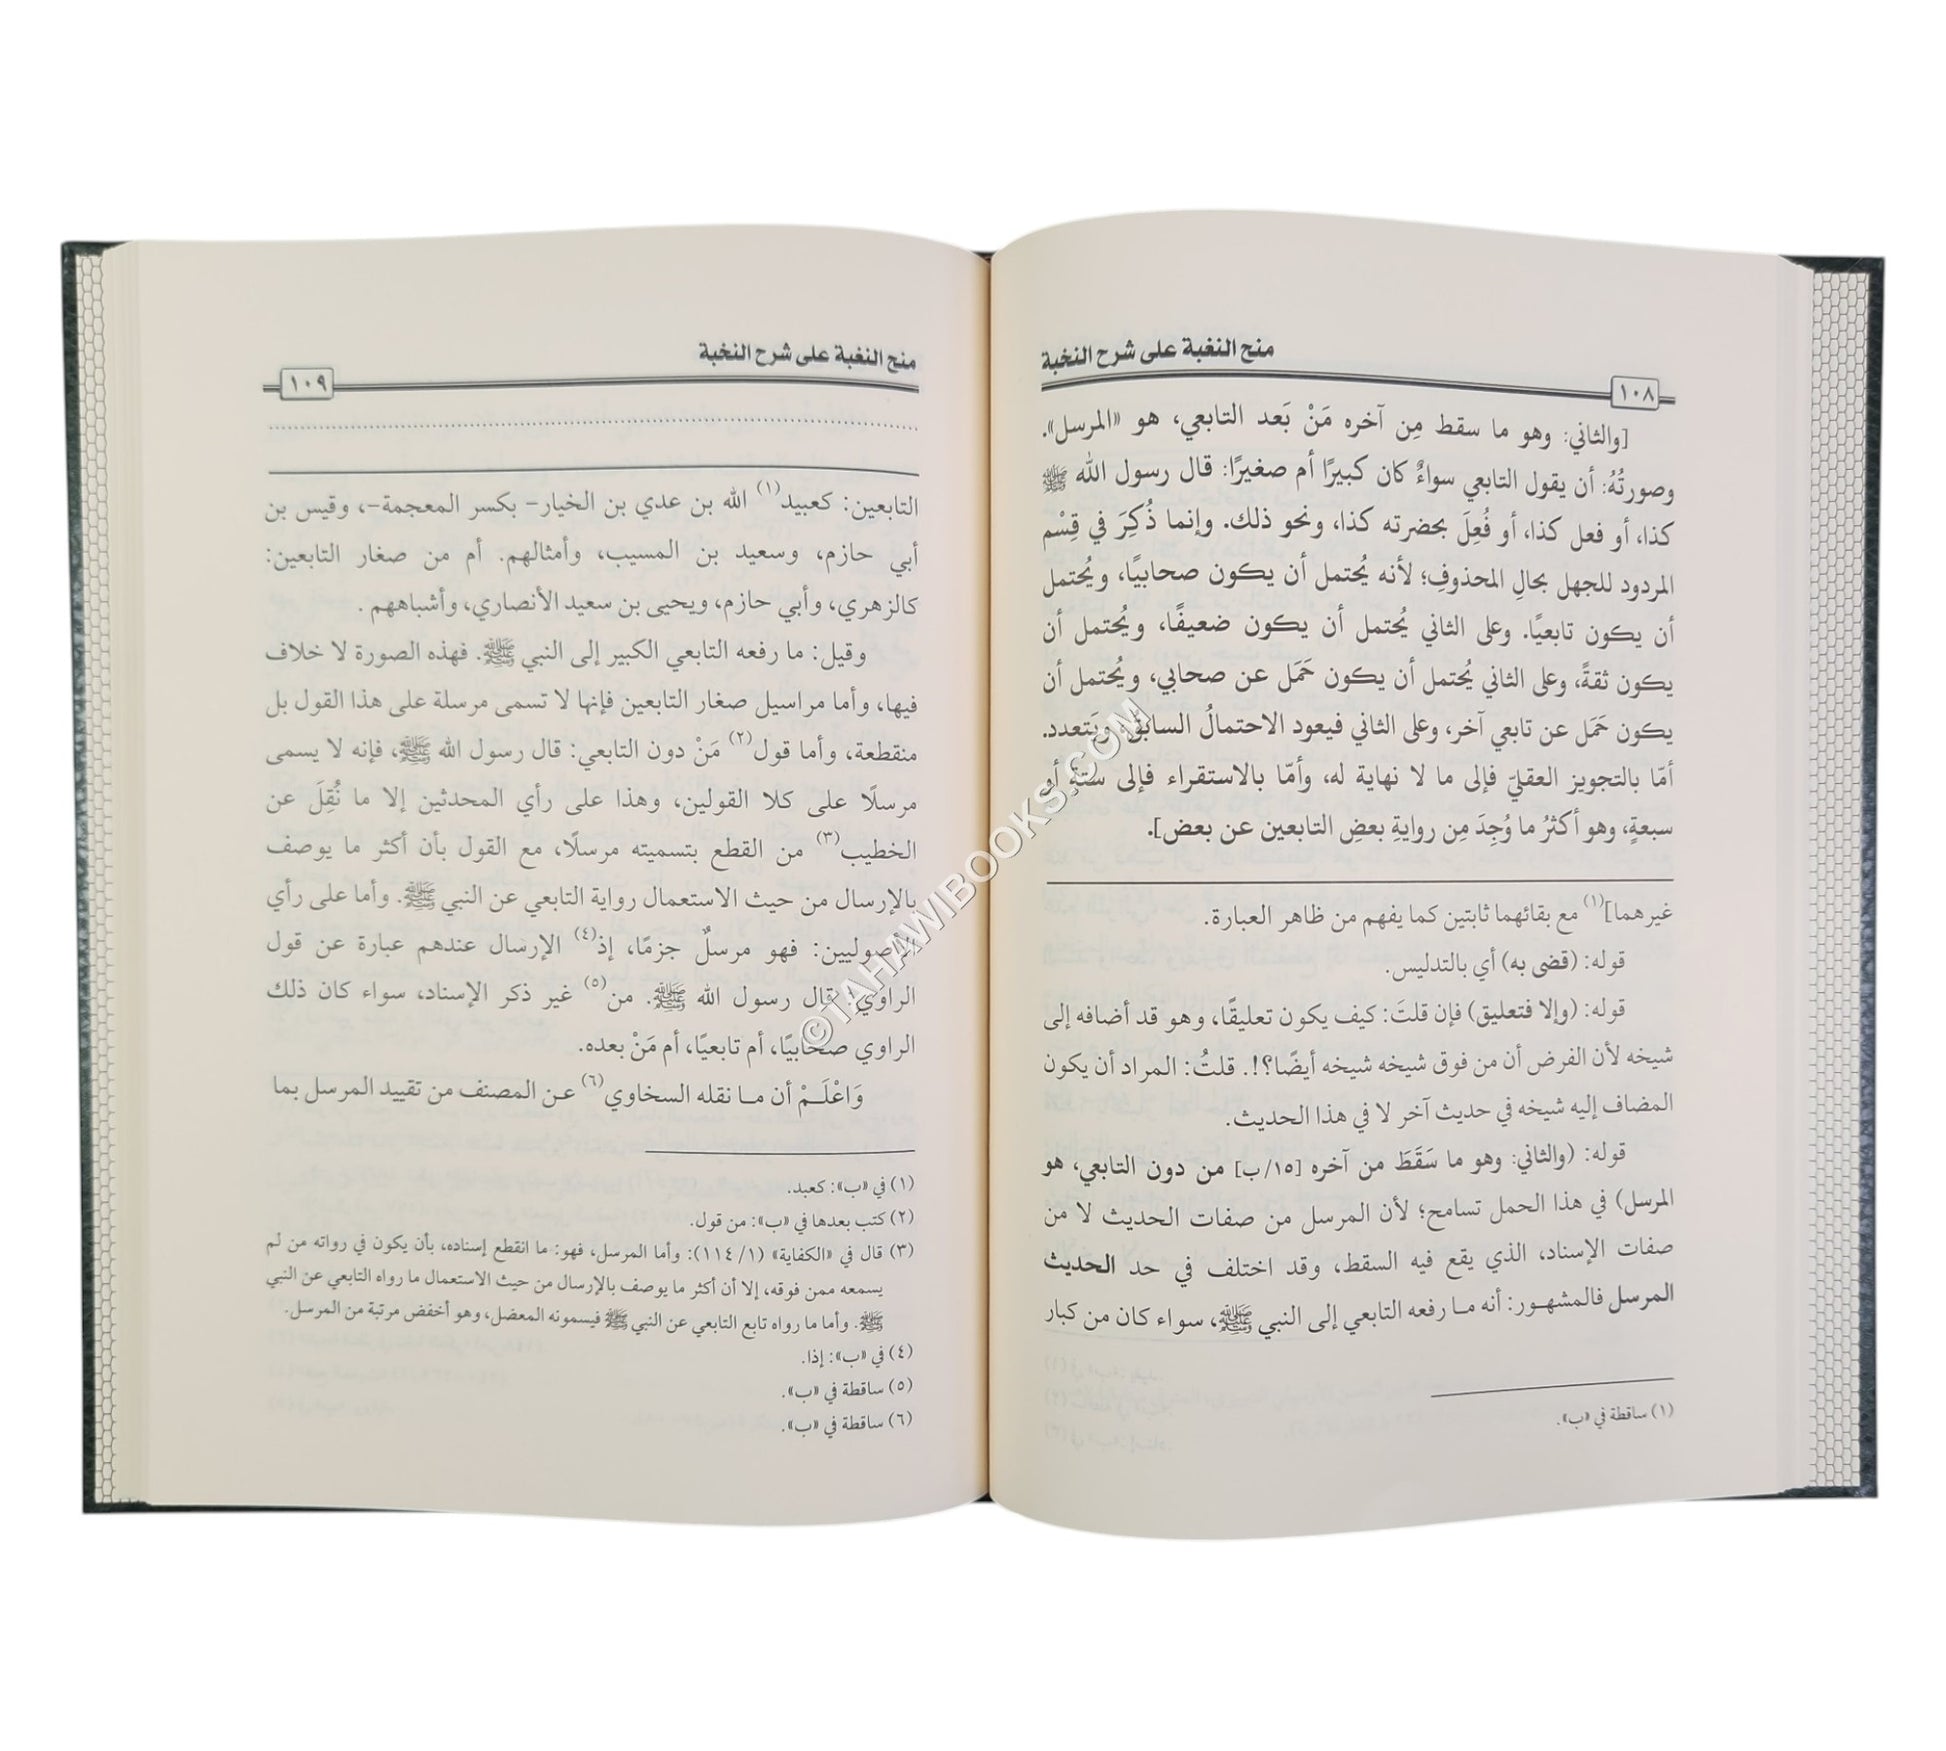 منح النغبة على شرح النخبة
١٠٨
[والثاني: وهو ما سقط مِن آخره مَنْ بَعد التابعي، هو «المرسل».
وصورتُهُ: أن يقول التابعي سواءٌ كان كبيرًا أم صغيرًا: قال رسول الله ﷺ
كذا، أو فعل كذا، أو فُعِلَ بحضرته كذا، ونحو ذلك. وإنما ذُكِرَ في قِسْم
المردود للجهل بحالِ المحذوفِ؛ لأنه يُحتمل أن يكون صحابيًا، ويُحتمل
أن يكون تابعيًا. وعلى الثاني يُحتمل أن يكون ضعيفًا، ويُحتمل أن
يكون ثقةً، وعلى الثاني يُحتمل أن يكون حَمَل عن صحابي، ويُحتمل أن
يكون حَمَل عن تابعي آخر، وعلى الثاني فيعود الاحتمالُ السابق، ويَتعدد.
أمّا بالتجويز العقليّ فإلى ما لا نهاية له، وأمّا بالاستقراء فإلى ستةٍ أو
سبعةٍ، وهو أكثرُ ما وُجِدَ مِن روايةِ بعضِ التابعين عن بعض].
غيرهما](١) مع بقائهما ثابتين كما يفهم من ظاهر العبارة.
قوله: (قضى به) أي بالتدليس.
قوله: (وإلا فتعليق) فإن قلتَ: كيف يكون تعليقًا، وهو قد أضافه إلى
شيخه لأن الفرض أن من فوق شيخه شيخه أيضًا؟!. قلتُ: المراد أن يكون
المضاف إليه شيخه في حديث آخر لا في هذا الحديث.
قوله: (والثاني: وهو ما سَقَطَ من آخره [١٥/ب] من دون التابعي، هو
المرسل) في هذا الحمل تسامح؛ لأن المرسل من صفات الحديث لا من
صفات الإسناد، الذي يقع فيه السقط، وقد اختلف في حد الحديث
المرسل فالمشهور: أنه ما رفعه التابعي إلى النبي ﷺ، سواء كان من كبار
(١) ساقطة في «ب».
منح النغبة على شرح النخبة
١٠٩
التابعين: كعبيد(١) الله بن عدي بن الخيار- بكسر المعجمة-، وقيس بن
أبي حازم، وسعيد بن المسيب، وأمثالهم. أم من صغار التابعين:
كالزهري، وأبي حازم، ويحيى بن سعيد الأنصاري، وأشباههم.
وقيل: ما رفعه التابعي الكبير إلى النبي ﷺ. فهذه الصورة لا خلاف
فيها، وأما مراسيل صغار التابعين فإنها لا تسمى مرسلة على هذا القول بل
منقطعة، وأما قول(٢) مَنْ دون التابعي: قال رسول الله ﷺ، فإنه لا يسمى
مرسلًا على كلا القولين، وهذا على رأي المحدثين إلا ما نُقِلَ عن
الخطيب(٣) من القطع بتسميته مرسلًا، مع القول بأن أكثر ما يوصف
بالإرسال من حيث الاستعمال رواية التابعي عن النبي ﷺ. وأما على رأي
الأصوليين: فهو مرسلٌ جزمًا، إذ(٤) الإرسال عندهم عبارة عن قول
الراوي: قال رسول الله ﷺ. من(٥) غير ذكر الإسناد، سواء كان ذلك
الراوي صحابيًا، أم تابعيًا، أم مَنْ بعده.
وَاعْلَمْ أن ما نقله السخاوي(٦) عن المصنف من تقييد المرسل بما
(١) في «ب»: كعبد.
(٢) كتب بعدها في «ب»: من قول.
(٣) قال في «الكفاية» (١/ ١١٤): وأما المرسل، فهو: ما انقطع إسناده، بأن يكون في رواته من لم
يسمعه ممن فوقه، إلا أن أكثر ما يوصف بالإرسال من حيث الاستعمال ما رواه التابعي عن النبي
ﷺ. وأما ما رواه تابع التابعي عن النبي ﷺ فيسمونه المعضل، وهو أخفض مرتبة من المرسل.
(٤) في «ب»: إذا.
(٥) ساقطة في «ب».
(٦) ساقطة في «ب».
©TAHAWIBOOKS.COM